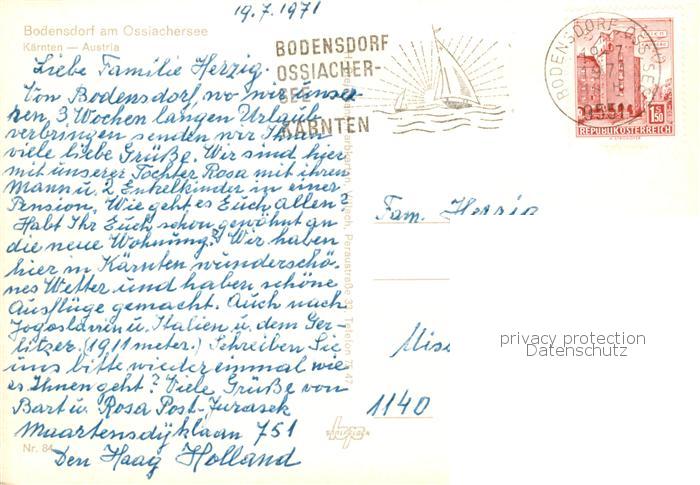 19.7.1971
Bodensdorf am Ossiachersee
Kärnten — Austria
Liebe Familie Herzig.
Von Bodensdorf, wo wir unse-
ren 3 Wochen langen Urlaub
verbringen senden wir Ihnen
viele liebe Grüße. Wir sind hier
mit unserer Tochter Rosa mit ihren
Mann u. 2 Enkelkinder in einer
Pension. Wie geht es Euch allen?
Habt Ihr Euch schon gewöhnt an
die neue Wohnung? Wir haben
hier in Kärnten wunderschö-
nes Wetter und haben schöne
Ausflüge gemacht. Auch nach
Jogoslavin u. Italien u. dem Ger-
litzer. (1911 meter.) Schreiben Sie
uns bitte wieder einmal wie
es Ihnen geht? Viele Grüße von
Bart u. Rosa Post-Jurasek
Maartensdyklaan 751
Den Haag Holland
Nr. 84
BODENSDORF
OSSIACHER-
SEE
KÄRNTEN
BODENSDORF
9551
1.50
REPUBLIK ÖSTERREICH
Villach, Peraustraße 33, Telefon
Fam. Herzig
1140
privacy protection
Datenschutz